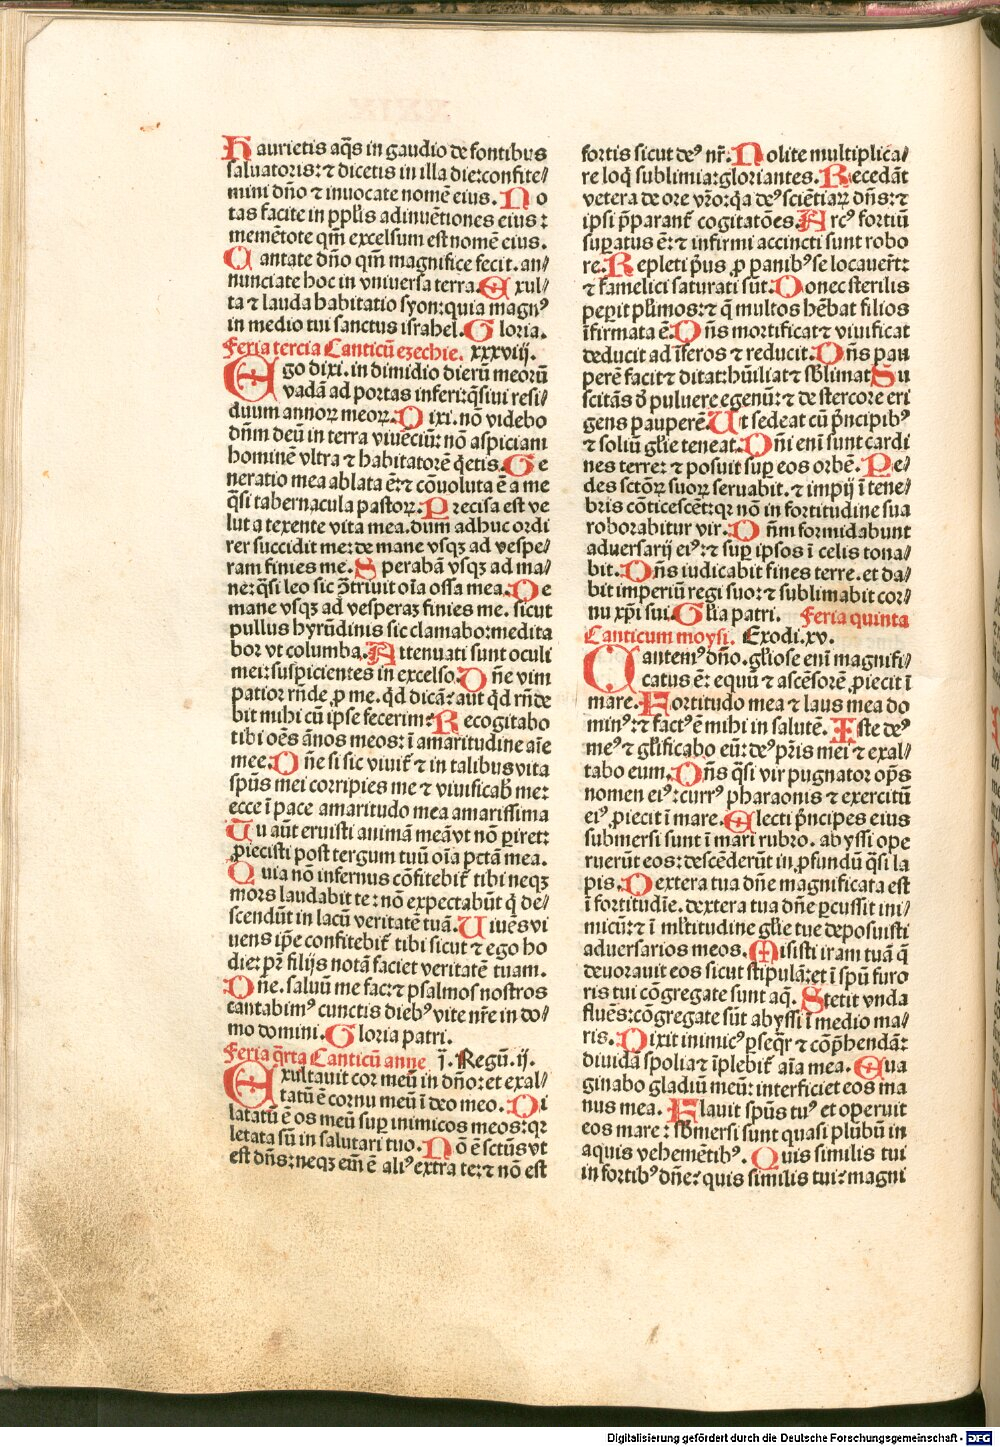 Haurietis aq̄s in gaudio de fontibus
saluatoris: ⁊ dicetis in illa die: confite⸗
mini dn̄o ⁊ inuocate nomē eius. No
tas facite in ppl̄is adinuētiones eius:
memētote qm̄ excelsum est nomē eius.
Cantate dn̄o qm̄ magnifice fecit. an⸗
nunciate hoc in vniuersa terra. Exul⸗
ta ⁊ lauda habitatio syon: quia magnꝰ
in medio tui sanctus israhel. Gloria.
Feria tercia Canticū ezechie. xxxviij.
Ego dixi. in dimidio dierū meorū
vadā ad portas inferi: q̄siui resi⸗
duum annoꝝ meoꝝ. Dixi. nō videbo
dn̄m deū in terra viuēciū: nō aspiciam
hominē vltra ⁊ habitatorē q̄etis. Ge
neratio mea ablata ē: ⁊ cōuoluta ē a me
q̄si tabernacula pastoꝝ. Precisa est ve
lut a texente vita mea. dum adhuc ordi
rer succidit me: de mane vsqꝫ ad vespe⸗
ram finies me. Sperabā vsqꝫ ad ma⸗
ne: q̄si leo sic ↄ̄triuit oīa ossa mea. De
mane vsqꝫ ad vesperaꝫ finies me. sicut
pullus hyrūdinis sic clamabo: medita
bor vt columba. Attenuati sunt oculi
mei: suspicientes in excelso. Dn̄e vim
patior rn̄de ꝓ me. qd̄ dicā: aut qd̄ rn̄de
bit mihi cū ipse fecerim: Recogitabo
tibi oēs ānos meos: ī amaritudine aīe
mee. Dn̄e si sic viuit̄ ⁊ in talibus vita
spūs mei corripies me ⁊ viuificab̄ me:
ecce ī pace amaritudo mea amarissima
Tu aūt eruisti animā meā vt nō ꝑiret:
ꝓiecisti post tergum tuū oīa pctā mea.
Quia nō infernus cōfitebit̄ tibi neqꝫ
mors laudabit te: nō expectabūt q̄ de⸗
scendūt in lacū veritatē tuā. Uiuēs vi
uens ip̄e confitebit̄ tibi sicut ⁊ ego ho
die: pr̄ filijs notā faciet veritatē tuam.
Dn̄e. saluū me fac: ⁊ psalmos nostros
cantabimꝰ cunctis diebꝰ vite nr̄e in do⸗
mo domini. Gloria patri.
Feria q̄rta Canticū anne ī. Regū. ij.
Exultauit cor meū in dn̄o: et exal⸗
tatū ē cornu meū ī deo meo. Di
latatū ē os meū suꝑ inimicos meos: qꝛ
letata sū in salutari tuo. Nō ē sctūs vt
est dn̄s: neqꝫ em̄ ē aliꝰ extra te: ⁊ nō est
fortis sicut deꝰ nr̄. Nolite multiplica⸗
re loq̄ sublimia: gloriantes. Recedāt
vetera de ore vr̄o: q̄a deꝰ sciētiaꝝ dn̄s: ⁊
ipsi p̄parant̄ cogitatōes. Arcꝰ fortiū
suꝑatus ē: ⁊ infirmi accincti sunt robo
re. Repleti p̄us ꝓ panibꝰ se locauer̄t:
⁊ famelici saturati sūt. Donec sterilis
peperit pl̄imos: ⁊ q̄ multos hēbat filios
īfirmata ē. Dn̄s mortificat ⁊ viuificat
deducit ad īferos ⁊ reducit. Dn̄s pau
perē facit ⁊ ditat: hūiliat ⁊ sb̄limat Su
scitās ð puluere egenū: ⁊ de stercore eri
gens pauperē. Ut sedeat cū p̄ncipibꝰ
⁊ soliū gl̄ie teneat. Dn̄i enī sunt cardi
nes terre: ⁊ posuit suꝑ eos orbē. Pe⸗
des sctōꝝ suoꝝ seruabit. ⁊ impij ī tene⸗
bris cōticescēt: qꝛ nō in fortitudine sua
roborabitur vir. Dn̄m formidabunt
aduersarij eiꝰ: ⁊ suꝑ ipsos ī celis tona⸗
bit. Dn̄s iudicabit fines terre. et da⸗
bit imperiū regi suo: ⁊ sublimabit cor⸗
nu xp̄i sui. Gl̄ia patri. Feria quinta
Canticum moysi. Exodi. xv.
Cantemꝰ dn̄o. gl̄iose enī magnifi⸗
catus ē: equū ⁊ ascēsorē ꝓiecit ī
mare. Fortitudo mea ⁊ laus mea do
minꝰ: ⁊ factꝰ ē mihi in salutē. Iste deꝰ
meꝰ ⁊ gl̄ificabo eū: deꝰ pr̄is mei ⁊ exal⸗
tabo eum. Dn̄s q̄si vir pugnator op̄s
nomen eiꝰ: currꝰ pharaonis ⁊ exercitū
eiꝰ ꝓiecit ī mare. Electi p̄ncipes eius
submersi sunt ī mari rubro. abyssi ope
ruerūt eos: descēderūt in ꝓfundū q̄si la
pis. Dextera tua dn̄e magnificata est
ī fortitudīe. dextera tua dn̄e ꝑcussit ini⸗
micū: ⁊ ī ml̄titudine gl̄ie tue deposuisti
aduersarios meos. Misisti iram tuā q̄
deuorauit eos sicut stipulā: et ī spū furo
ris tui cōgregate sunt aq̄. Stetit vnda
fluēs: cōgregate sūt abyssi ī medio ma⸗
ris. Dixit inimicꝰ ꝑseq̄r ⁊ cōp̄hendā:
diuidā spolia ⁊ īplebit̄ aīa mea. Eua
ginabo gladiū meū: interficiet eos ma
nus mea. Flauit spūs tuꝰ et operuit
eos mare: sb̄mersi sunt quasi plūbū in
aquis vehemētibꝰ. Quis similis tui
in fortibꝰ dn̄e: quis similis tui: magni
Digitalisierung gefördert durch die Deutsche Forschungsgemeinschaft - DFG